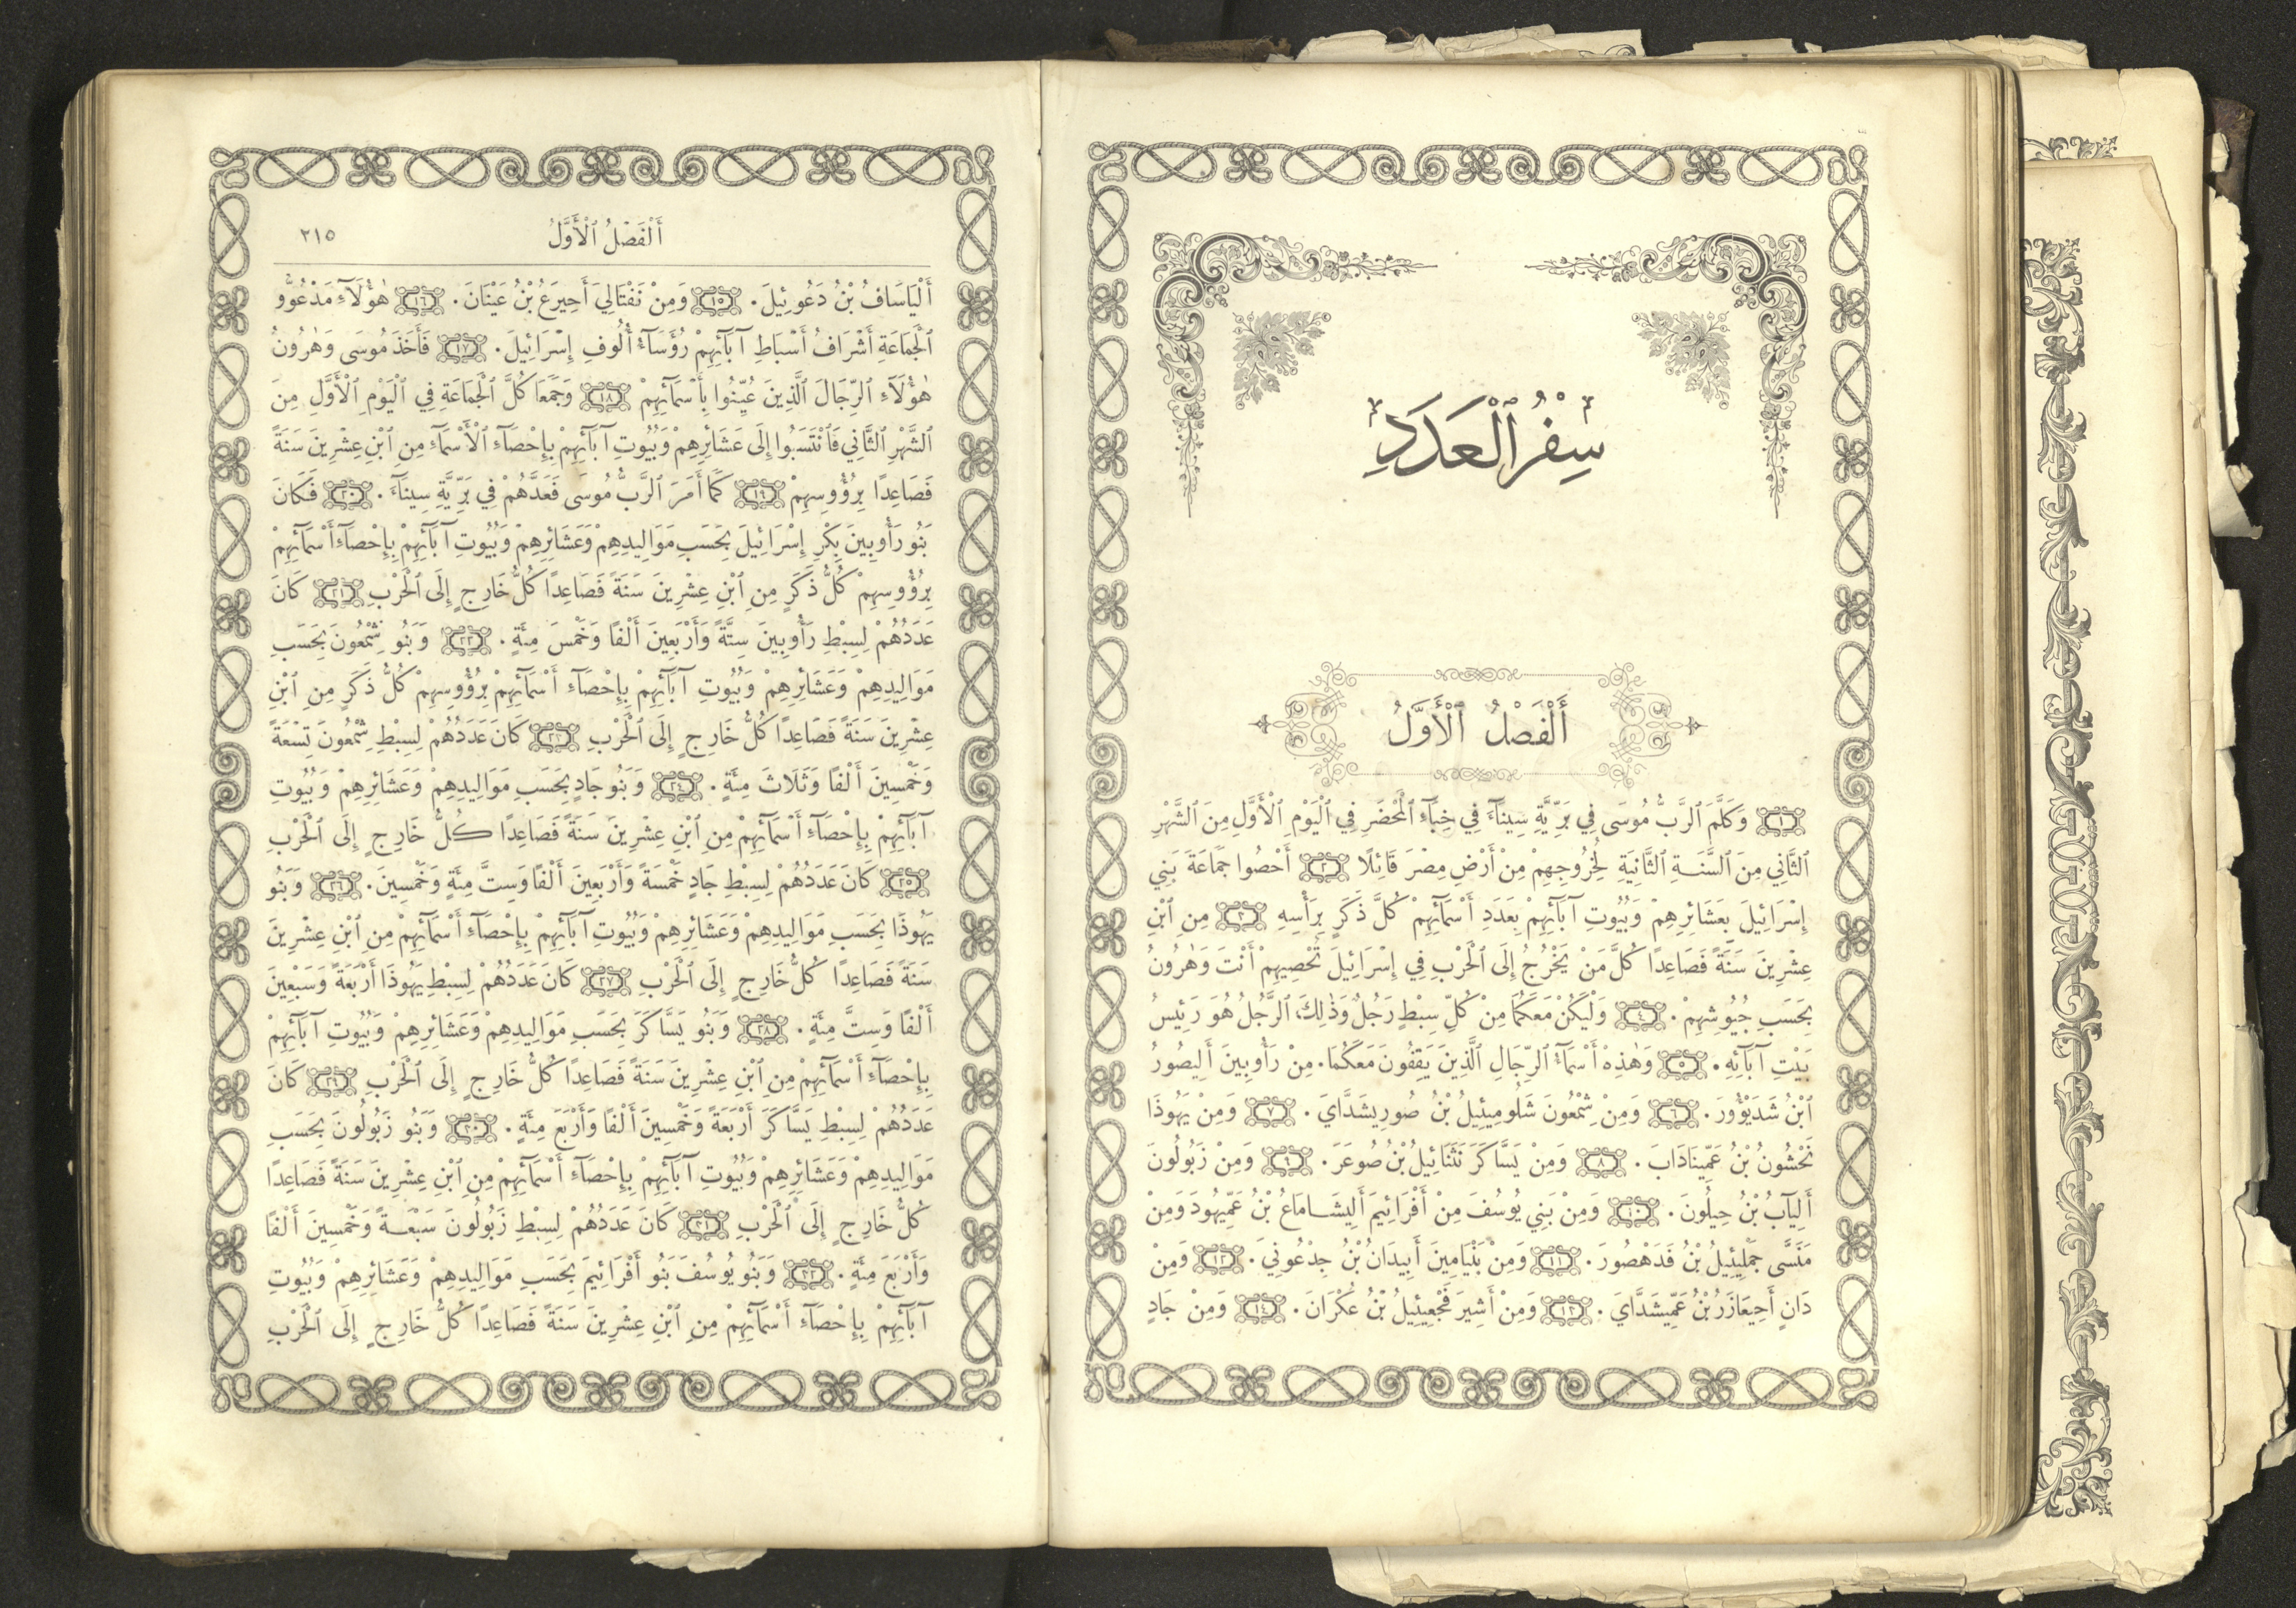 سِفْرُ ٱلْعَدَدِ
أَلْفَصْلُ ٱلْأَوَّلُ
١ وَكَلَّمَ ٱلرَّبُّ مُوسَى فِي بَرِّيَّةِ سِينَآءَ فِي خِبَآءِ ٱلْمَحْضَرِ فِي ٱلْيَوْمِ ٱلْأَوَّلِ مِنَ ٱلشَّهْرِ
ٱلثَّانِي مِنَ ٱلسَّنَةِ ٱلثَّانِيَةِ لِخُرُوجِهِمْ مِنْ أَرْضِ مِصْرَ قَائِلًا ٢ أَحْصُوا جَمَاعَةَ بَنِي
إِسْرَائِيلَ بِعَشَائِرِهِمْ وَبُيُوتِ آبَآئِهِمْ بِعَدَدِ أَسْمَآئِهِمْ كُلَّ ذَكَرٍ بِرَأْسِهِ ٣ مِنِ ٱبْنِ
عِشْرِينَ سَنَةً فَصَاعِدًا كُلَّ مَنْ يَخْرُجُ إِلَى ٱلْحَرْبِ فِي إِسْرَائِيلَ تُحْصِيهِمْ أَنْتَ وَهٰرُونُ
بِحَسَبِ جُيُوشِهِمْ. ٤ وَلْيَكُنْ مَعَكُمَا مِنْ كُلِّ سِبْطٍ رَجُلٌ وَذٰلِكَ ٱلرَّجُلُ هُوَ رَئِيسُ
بَيْتِ آبَآئِهِ. ٥ وَهٰذِهْ أَسْمَآءُ ٱلرِّجَالِ ٱلَّذِينَ يَقِفُونَ مَعَكُمَا. مِنْ رَأُوبِينَ أَلِيصُورُ
ٱبْنُ شَدَيْؤُورَ. ٦ وَمِنْ شِمْعُونَ شَلُومِيئِيلُ بْنُ صُورِيشَدَّايَ. ٧ وَمِنْ يَهُوذَا
نَحْشُونُ بْنُ عَمِّينَادَابَ. ٨ وَمِنْ يَسَّاكَرَ نَثَنَائِيلُ بْنُ صُوعَرَ. ٩ وَمِنْ زَبُولُونَ
أَلِيآبُ بْنُ حِيلُونَ. ١٠ وَمِنْ بَنِي يُوسُفَ مِنْ أَفْرَائِيمَ أَلِيشَامَاعُ بْنُ عَمِّيهُودَ وَمِنْ
مَنَسَّى جَمْلِيئِيلُ بْنُ فَدَهْصُورَ. ١١ وَمِنْ بَنْيَامِينَ أَبِيدَانُ بْنُ جِدْعُونِيَ. ١٢ وَمِنْ
دَانٍ أَحِيعَازَرُ بْنُ عَمِّيشَدَّايَ. ١٣ وَمِنْ أَشِيرَ فَجْعِيئِيلُ بْنُ عُكْرَانَ. ١٤ وَمِنْ جَادٍ
أَلْفَصْلُ ٱلْأَوَّلُ ٢١٥
أَلْيَاسَافُ بْنُ دَعُوئِيلَ. ١٥ وَمِنْ نَفْتَالِيَ أَحِيرَعُ بْنُ عَيْنَانَ. ١٦ هٰؤُلَآءِ مَدْعُوُّو
ٱلْجَمَاعَةِ أَشْرَافُ أَسْبَاطِ آبَآئِهِمْ رُؤَسَآءُ أُلُوفِ إِسْرَائِيلَ. ١٧ فَأَخَذَ مُوسَى وَهٰرُونُ
هٰؤُلَآءِ ٱلرِّجَالَ ٱلَّذِينَ عُيِّنُوا بِأَسْمَآئِهِمْ ١٨ وَجَمَعَا كُلَّ ٱلْجَمَاعَةِ فِي ٱلْيَوْمِ ٱلْأَوَّلِ مِنَ
ٱلشَّهْرِ ٱلثَّانِي فَٱنْتَسَبُوا إِلَى عَشَائِرِهِمْ وَبُيُوتِ آبَآئِهِمْ بِإِحْصَآءِ ٱلْأَسْمَآءِ مِنِ ٱبْنِ عِشْرِينَ سَنَةً
فَصَاعِدًا بِرُؤُوسِهِمْ ١٩ كَمَا أَمَرَ ٱلرَّبُّ مُوسَى فَعَدَّهُمْ فِي بَرِّيَّةِ سِينَآءَ. ٢٠ فَكَانَ
بَنُو رَأُوبِينَ بِكْرِ إِسْرَائِيلَ بِحَسَبِ مَوَالِيدِهِمْ وَعَشَائِرِهِمْ وَبُيُوتِ آبَآئِهِمْ بِإِحْصَآءِ أَسْمَآئِهِمْ
بِرُؤُوسِهِمْ كُلُّ ذَكَرٍ مِنِ ٱبْنِ عِشْرِينَ سَنَةً فَصَاعِدًا كُلُّ خَارِجٍ إِلَى ٱلْحَرْبِ ٢١ كَانَ
عَدَدُهُمْ لِسِبْطِ رَأُوبِينَ سِتَّةً وَأَرْبَعِينَ أَلْفًا وَخَمْسَ مِئَةٍ. ٢٢ وَبَنُو شِمْعُونَ بِحَسَبِ
مَوَالِيدِهِمْ وَعَشَائِرِهِمْ وَبُيُوتِ آبَآئِهِمْ بِإِحْصَآءِ أَسْمَآئِهِمْ بِرُؤُوسِهِمْ كُلُّ ذَكَرٍ مِنِ ٱبْنِ
عِشْرِينَ سَنَةً فَصَاعِدًا كُلُّ خَارِجٍ إِلَى ٱلْحَرْبِ ٢٣ كَانَ عَدَدُهُمْ لِسِبْطِ شِمْعُونَ تِسْعَةً
وَخَمْسِينَ أَلْفًا وَثَلَاثَ مِئَةٍ. ٢٤ وَبَنُو جَادٍ بِحَسَبِ مَوَالِيدِهِمْ وَعَشَائِرِهِمْ وَبُيُوتِ
آبَآئِهِمْ بِإِحْصَآءِ أَسْمَآئِهِمْ مِنِ ٱبْنِ عِشْرِينَ سَنَةً فَصَاعِدًا كُلُّ خَارِجٍ إِلَى ٱلْحَرْبِ
٢٥ كَانَ عَدَدُهُمْ لِسِبْطِ جَادٍ خَمْسَةً وَأَرْبَعِينَ أَلْفًا وَسِتَّ مِئَةٍ وَخَمْسِينَ. ٢٦ وَبَنُو
يَهُوذَا بِحَسَبِ مَوَالِيدِهِمْ وَعَشَائِرِهِمْ وَبُيُوتِ آبَآئِهِمْ بِإِحْصَآءِ أَسْمَآئِهِمْ مِنِ ٱبْنِ عِشْرِينَ
سَنَةً فَصَاعِدًا كُلُّ خَارِجٍ إِلَى ٱلْحَرْبِ ٢٧ كَانَ عَدَدُهُمْ لِسِبْطِ يَهُوذَا أَرْبَعَةً وَسَبْعِينَ
أَلْفًا وَسِتَّ مِئَةٍ. ٢٨ وَبَنُو يَسَّاكَرَ بِحَسَبِ مَوَالِيدِهِمْ وَعَشَائِرِهِمْ وَبُيُوتِ آبَآئِهِمْ
بِإِحْصَآءِ أَسْمَآئِهِمْ مِنِ ٱبْنِ عِشْرِينَ سَنَةً فَصَاعِدًا كُلُّ خَارِجٍ إِلَى ٱلْحَرْبِ ٢٩ كَانَ
عَدَدُهُمْ لِسِبْطِ يَسَّاكَرَ أَرْبَعَةً وَخَمْسِينَ أَلْفًا وَأَرْبَعَ مِئَةٍ. ٣٠ وَبَنُو زَبُولُونَ بِحَسَبِ
مَوَالِيدِهِمْ وَعَشَائِرِهِمْ وَبُيُوتِ آبَآئِهِمْ بِإِحْصَآءِ أَسْمَآئِهِمْ مِنِ ٱبْنِ عِشْرِينَ سَنَةً فَصَاعِدًا
كُلُّ خَارِجٍ إِلَى ٱلْحَرْبِ ٣١ كَانَ عَدَدُهُمْ لِسِبْطِ زَبُولُونَ سَبْعَةً وَخَمْسِينَ أَلْفًا
وَأَرْبَعَ مِئَةٍ. ٣٢ وَبَنُو يُوسُفَ بَنُو أَفْرَائِيمَ بِحَسَبِ مَوَالِيدِهِمْ وَعَشَائِرِهِمْ وَبُيُوتِ
آبَآئِهِمْ بِإِحْصَآءِ أَسْمَآئِهِمْ مِنِ ٱبْنِ عِشْرِينَ سَنَةً فَصَاعِدًا كُلُّ خَارِجٍ إِلَى ٱلْحَرْبِ